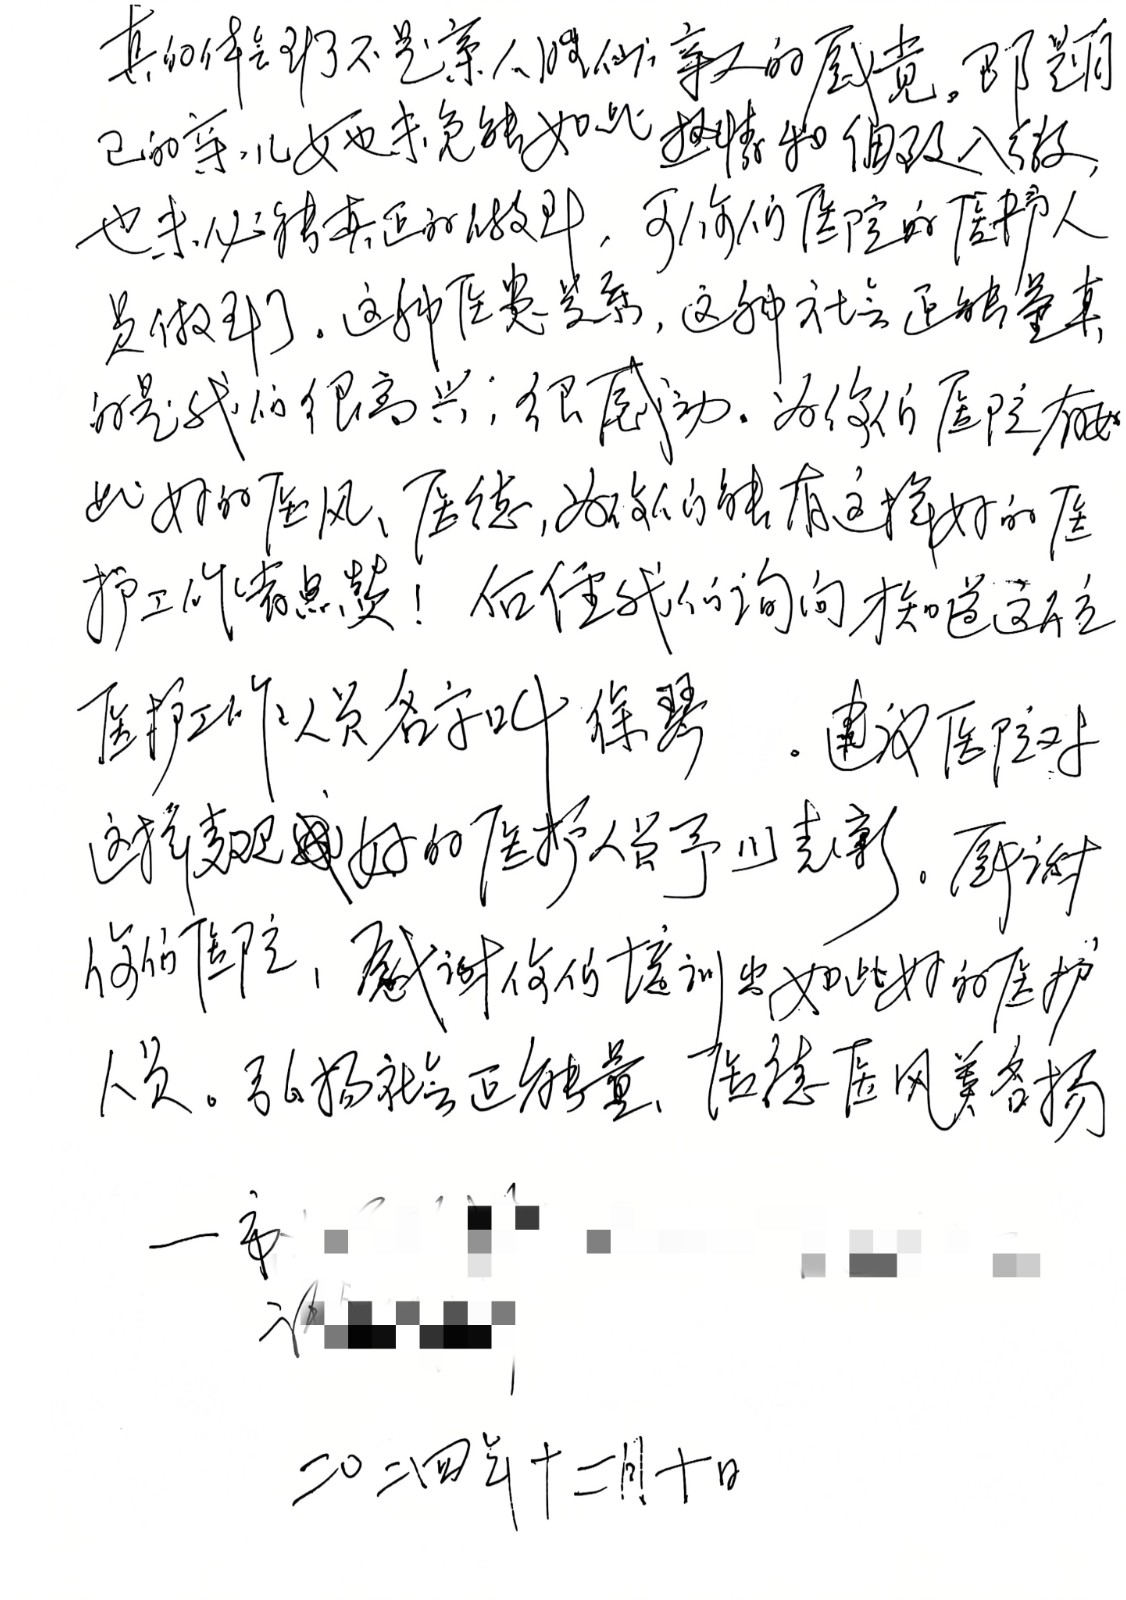 真的体会到了不是亲人胜似亲人的感觉。即是自
己的亲儿女也未免能如此热情和细致入微,
也未必能真正的做到,可你们医院的医护人
员做到了。这种医患关系,这种社会正能量真
的是我们很高兴;很感动。为你们医院有如
此好的医风、医德,为你们能有这样好的医
护工作者点赞!后经我们询问才知道这位
医护工作人员名字叫徐琴。建议医院对
这样表现好的医护人员予以表彰。感谢
你们医院,感谢你们培训出如此好的医护
人员。弘扬社会正能量、医德医风美名扬
一市
二〇二四年十二月十日